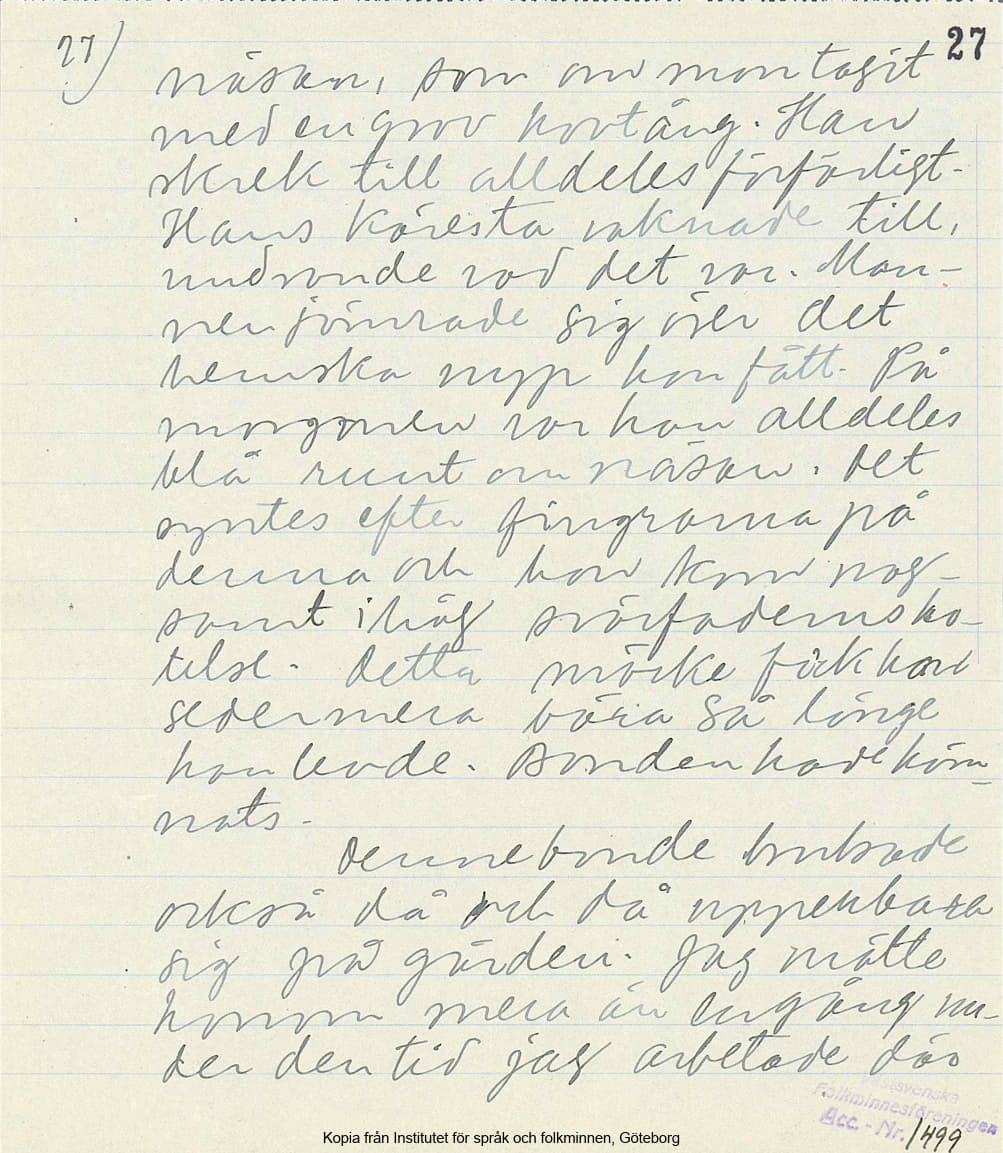 27) 27
näsan, som om man tagit
med en grov hovtång. Han
skrek till alldeles förfärligt.
Hans käresta vaknade till,
undrande vad det var. Man-
nen jämrade sig över det
hemska nyp han fått. På
morgonen var han alldeles
blå runt om näsan. Det
syntes efter fingrarna på
denna och han kom nog-
samt ihåg svärfaderns ho-
telse. Detta märke fick han
sedermera bära så länge
han levde. Bonden hade häm-
nats.
Denne bonde brukade
också då och då uppenbara
sig på gården. Jag mötte
honom mera än en gång un-
der den tid jag arbetade där
Västsvenska
Folkminnesföreningen
Acc. - Nr. 1499
Kopia från Institutet för språk och folkminnen, Göteborg